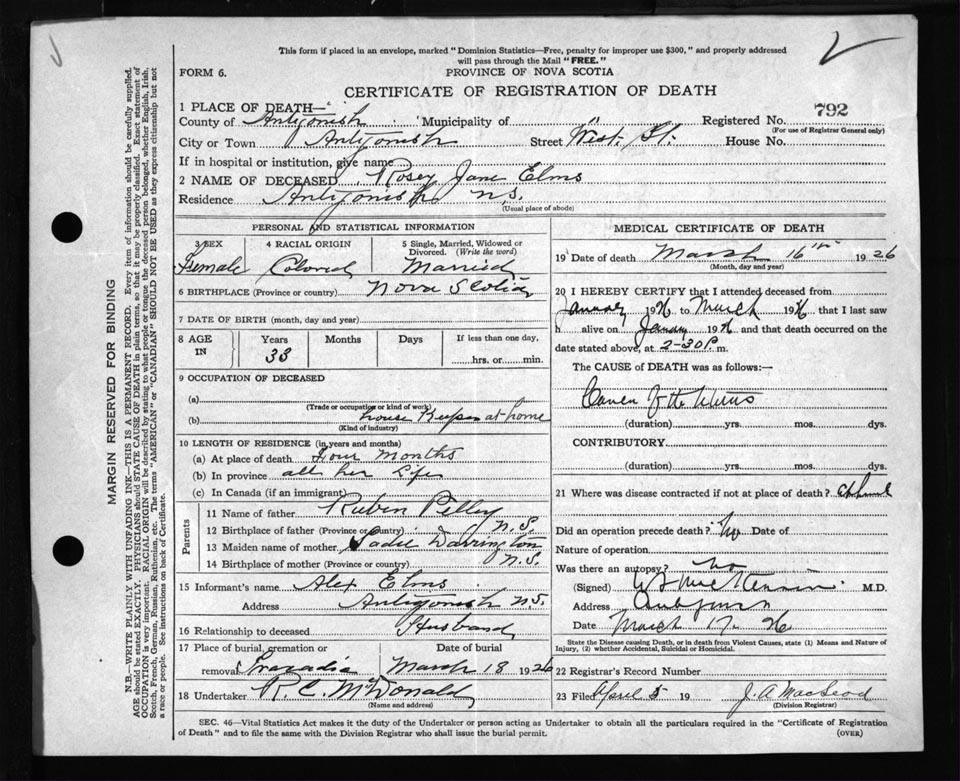 This form if placed in an envelope, marked "Dominion Statistics—Free, penalty for improper use $300," and properly addressed
will pass through the Mail "FREE."
FORM 6.
PROVINCE OF NOVA SCOTIA
CERTIFICATE OF REGISTRATION OF DEATH
1 PLACE OF DEATH—
County of Antigonish Municipality of " Registered No. 792
(For use of Registrar General only)
City or Town Antigonish Street West. St. House No.
If in hospital or institution, give name
2 NAME OF DECEASED Rosey Jane Elms
Residence Antigonish N.S.
(Usual place of abode)
PERSONAL AND STATISTICAL INFORMATION
3 SEX 4 RACIAL ORIGIN 5 Single, Married, Widowed or
Divorced. (Write the word)
Female Colored Married
6 BIRTHPLACE (Province or country) Nova Scotia
7 DATE OF BIRTH (month, day and year)
8 AGE IN Years Months Days If less than one day,
33 hrs. or min.
9 OCCUPATION OF DECEASED
(a)
(Trade or occupation or kind of work)
(b) house Keeper at home
(Kind of industry)
10 LENGTH OF RESIDENCE (in years and months)
(a) At place of death Four Months
(b) In province all her Life
(c) In Canada (if an immigrant)
Parents
11 Name of father Ruben Pelley
12 Birthplace of father (Province or country) N.S.
13 Maiden name of mother Sadie Darrington
14 Birthplace of mother (Province or country) N.S.
15 Informant's name Alex Elms
Address Antigonish N.S.
16 Relationship to deceased Husband
17 Place of burial, cremation or Date of burial
removal Tracadia March 18 1926
18 Undertaker R. C. McDonald
(Name and address)
MEDICAL CERTIFICATE OF DEATH
19 Date of death March 16th 1926
(Month, day and year)
20 I HEREBY CERTIFY that I attended deceased from
January 1926 to March 1926 that I last saw
h alive on January 1926 and that death occurred on
date stated above, at 2-30 P. m.
The CAUSE of DEATH was as follows:—
Cancer of the Uterus
(duration) yrs. mos. dys.
CONTRIBUTORY
(duration) yrs. mos. dys.
21 Where was disease contracted if not at place of death?
Did an operation precede death? No Date of
Nature of operation
Was there an autopsy? no
(Signed) M.D.
Address
Date March 17. 26
State the Disease causing Death, or in death from Violent Causes, state (1) Means and Nature of
Injury, (2) whether Accidental, Suicidal or Homicidal.
22 Registrar's Record Number
23 Filed April 5 19 J. A. MacLeod
(Division Registrar)
SEC. 46—Vital Statistics Act makes it the duty of the Undertaker or person acting as Undertaker to obtain all the particulars required in the "Certificate of Registration
of Death" and to file the same with the Division Registrar who shall issue the burial permit. (OVER)
MARGIN RESERVED FOR BINDING
N.B.—WRITE PLAINLY WITH UNFADING INK—THIS IS A PERMANENT RECORD. Every item of information should be carefully supplied.
AGE should be stated EXACTLY. PHYSICIANS should STATE CAUSE OF DEATH in plain terms, so that it may be properly classified. Exact statement of
OCCUPATION is very important. RACIAL ORIGIN will be described by stating to what people or tongue the deceased person belonged, whether English, Irish,
Scotch, French, German, Russian, Ruthenian, etc. The terms "AMERICAN" or "CANADIAN" SHOULD NOT BE USED as they express citizenship but not
a race or people. See instructions on back of Certificate.